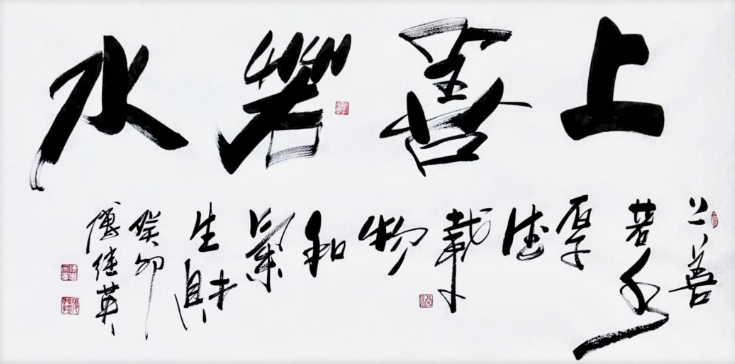 上善若水
上善
若水
厚
德
載
物
和
氣
生財
癸卯
傅英